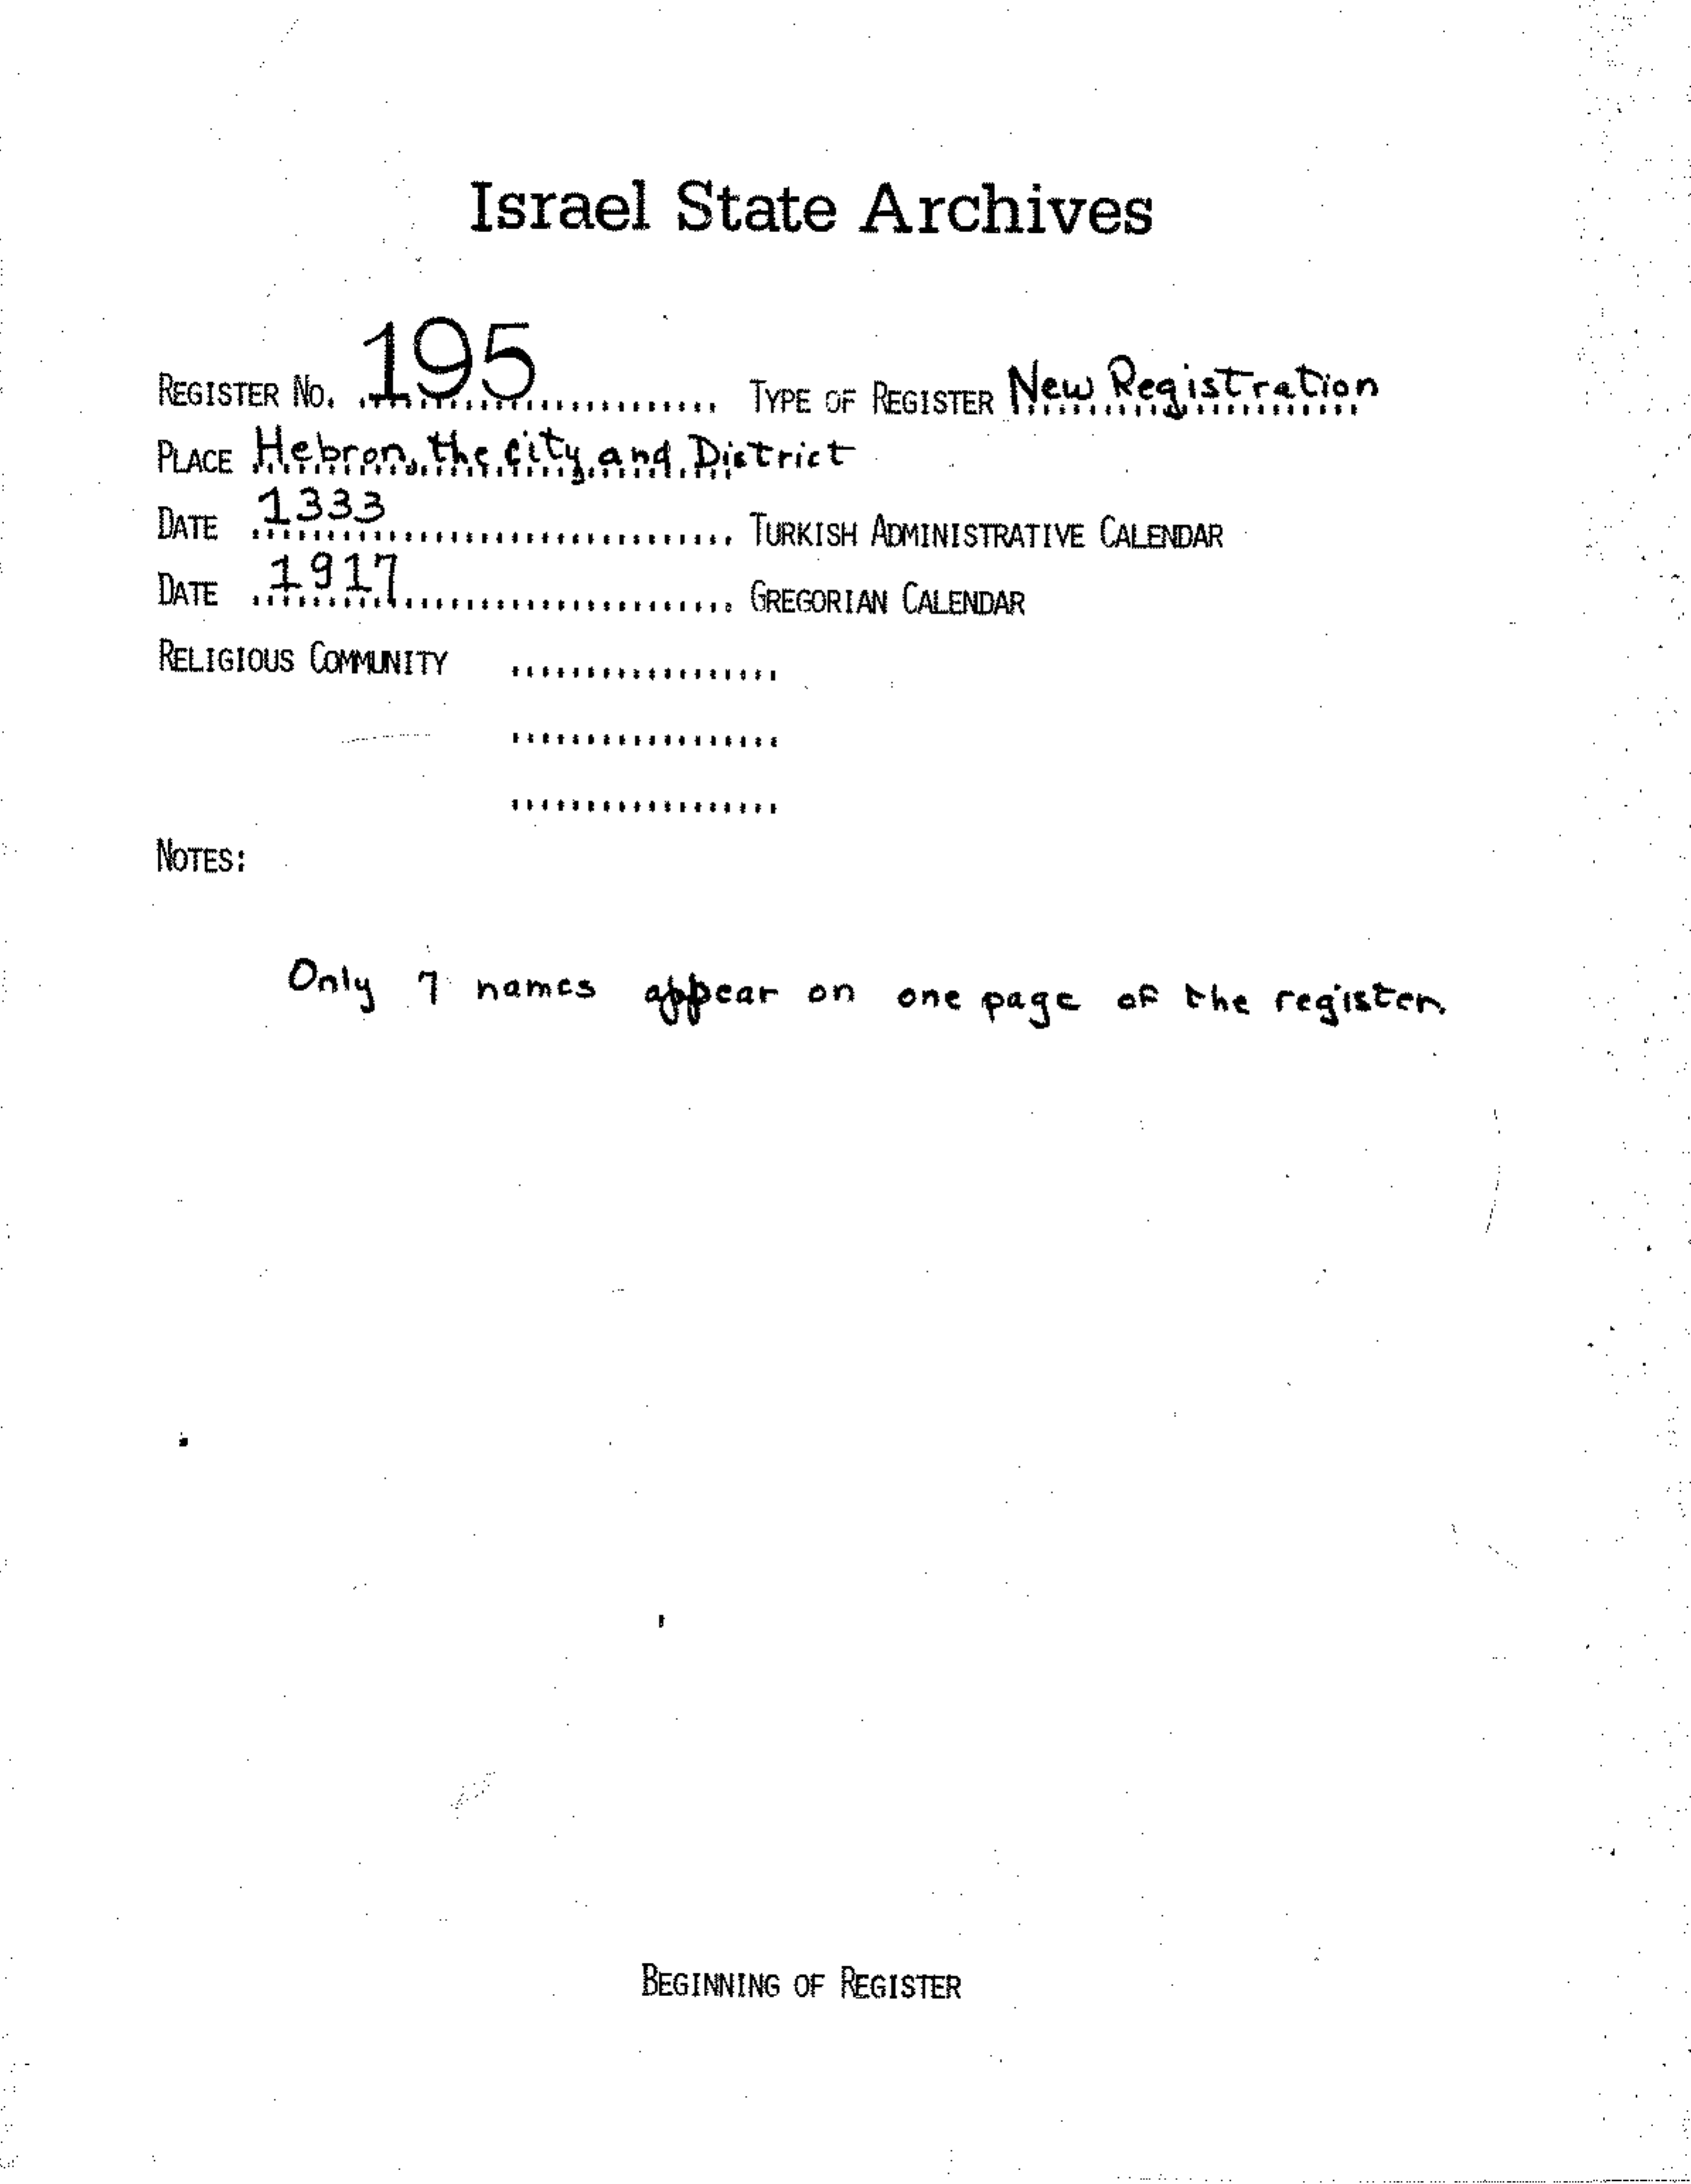 Israel State Archives
REGISTER NO. 195 TYPE OF REGISTER New Registration
PLACE Hebron, the city and District
DATE 1333 TURKISH ADMINISTRATIVE CALENDAR
DATE 1917 GREGORIAN CALENDAR
RELIGIOUS COMMUNITY
NOTES:
Only 7 names appear on one page of the register.
BEGINNING OF REGISTER